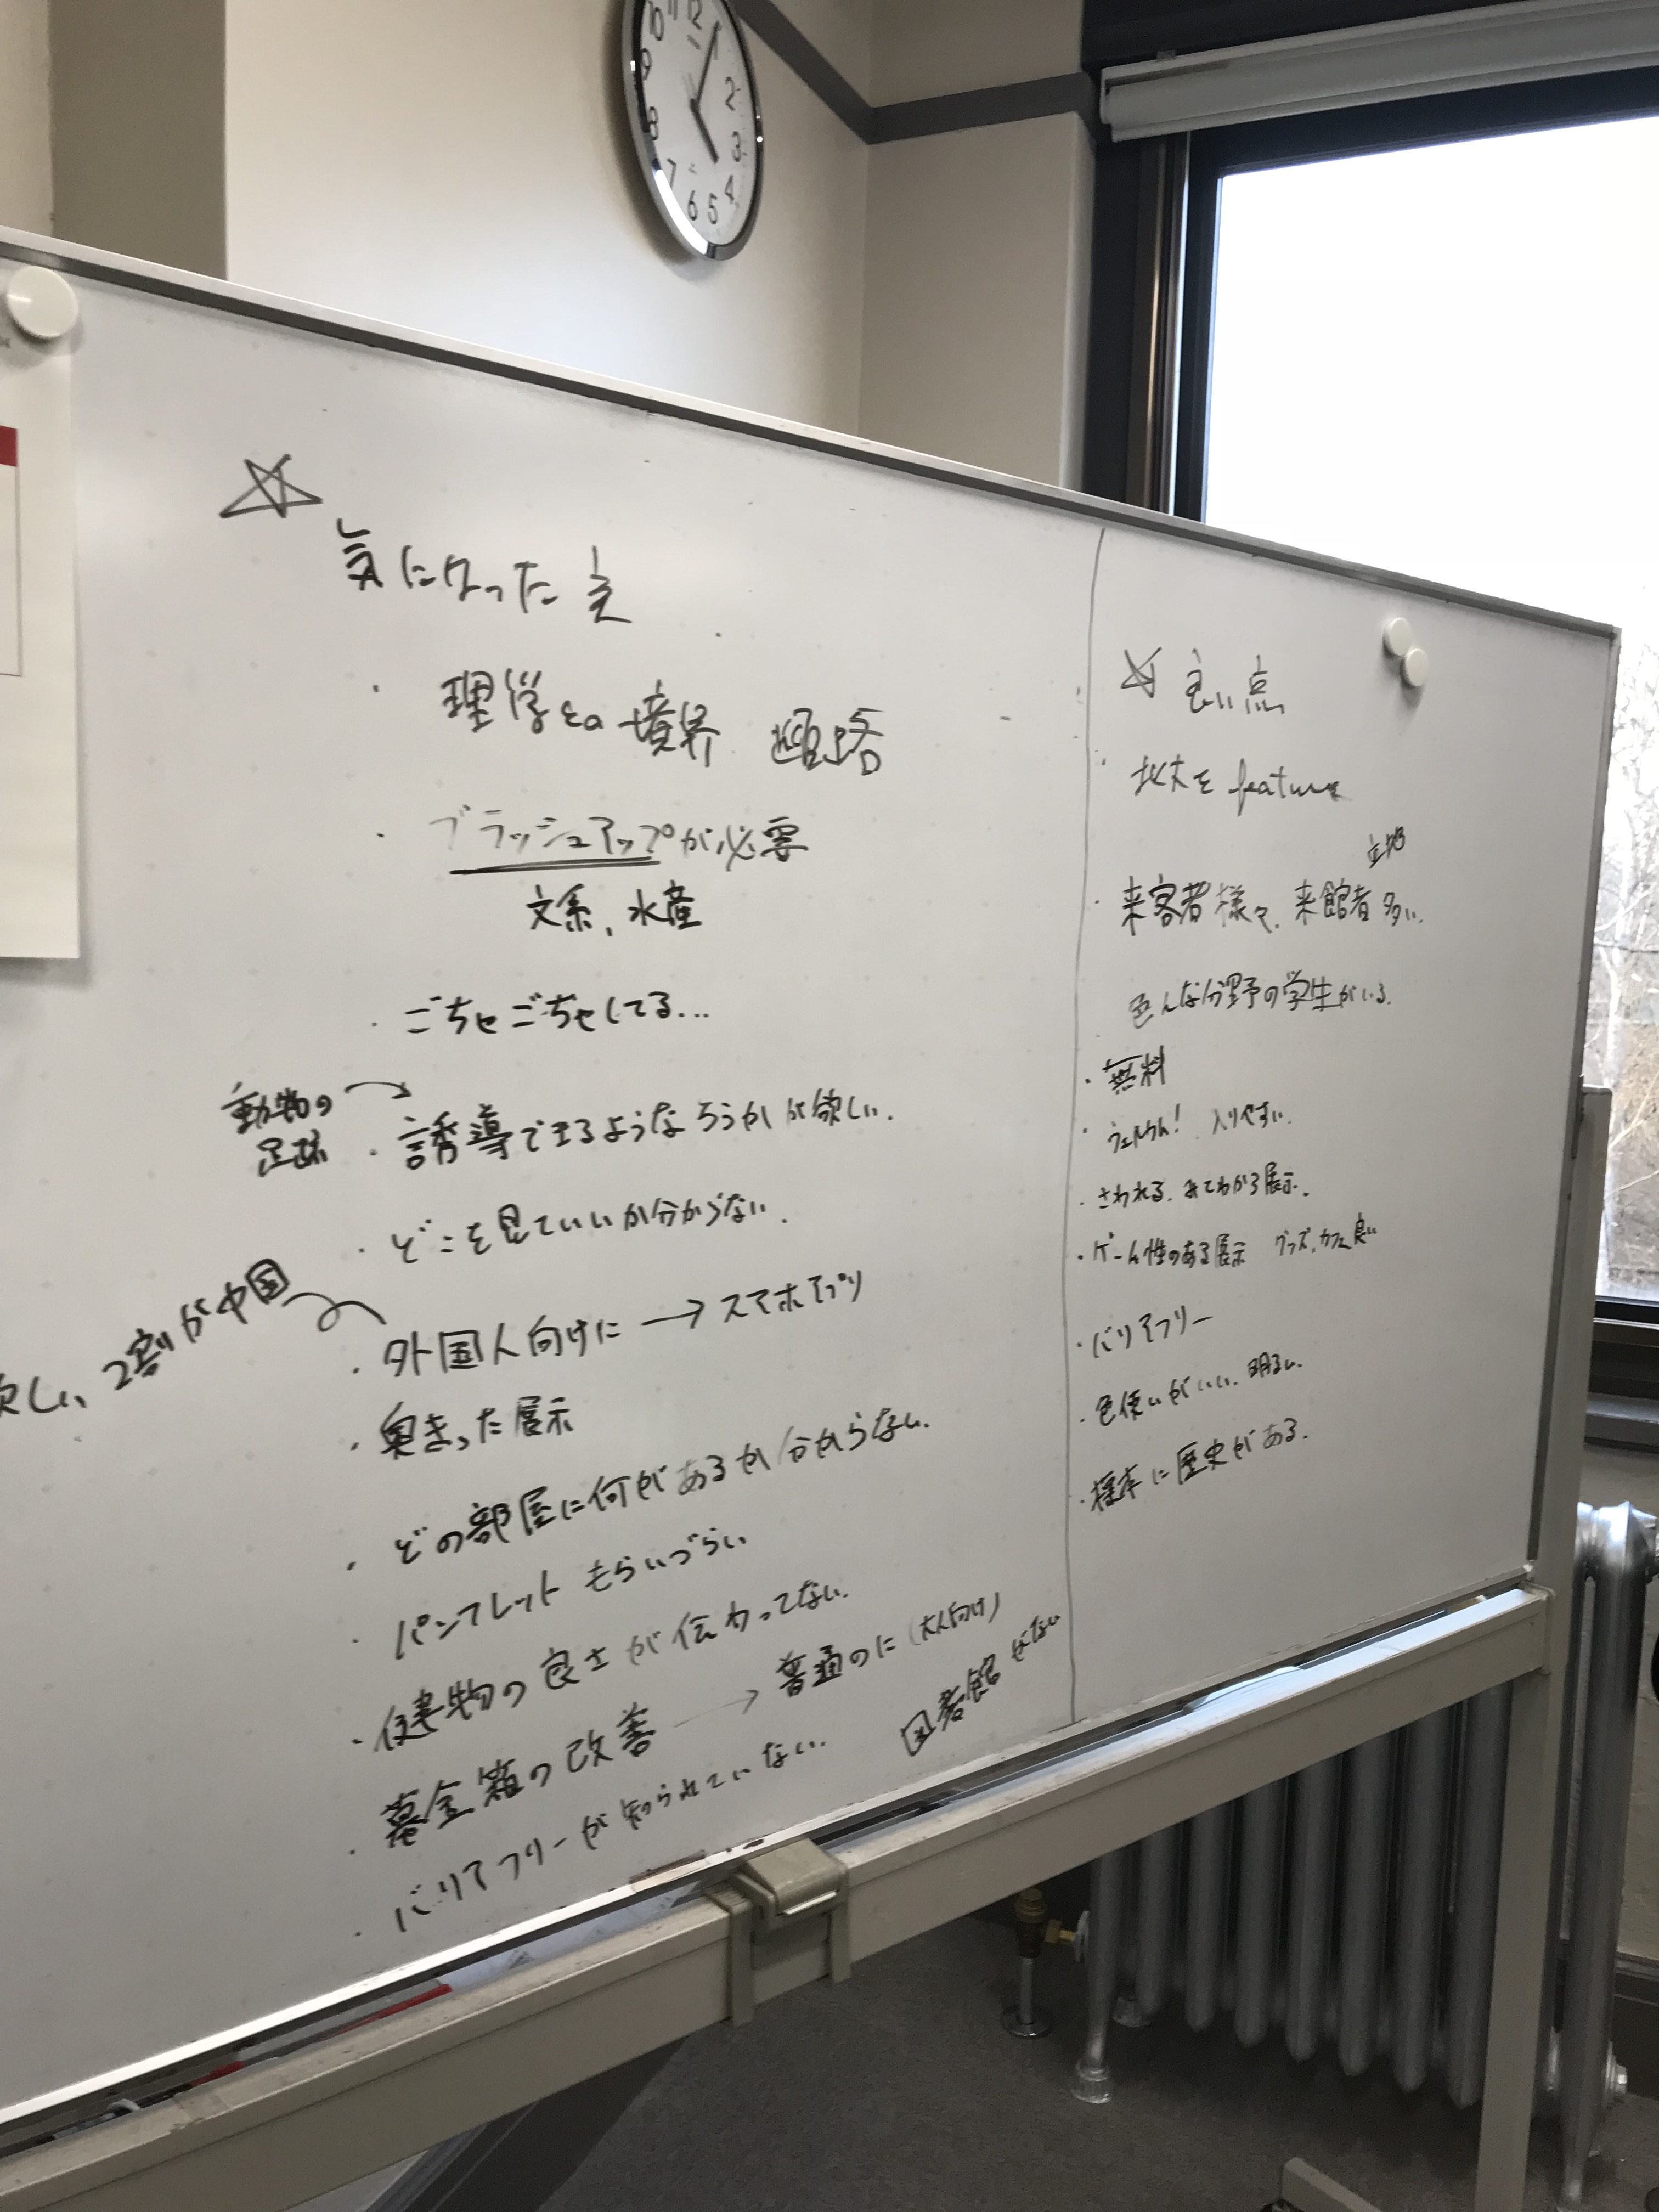 10 11 12
1
9
2
8
3
7
4
6
5
気になった点
・理学との境界 通路
・ブラッシュアップが必要
文系、水産
・ごちゃごちゃしてる...
動物の
足跡
・誘導できるようなろうかが欲しい.
・どこを見ていいか分からない.
しい、2割が中国
・外国人向けに → スマホアプリ
・奥まった展示
・どの部屋に何があるか分からない.
・パンフレット もらいづらい
・建物の良さが伝わってない.
・募金箱の改善 → 普通のに (大人向け)
・バリアフリーが知られていない.
図書館がない
良い点
・北大を feature
立地
・来客者様々、来館者多い.
色んな分野の学生がいる.
・無料
・ウェルカム! 入りやすい.
・さわれる. みてわかる展示.
・ゲーム性のある展示 グッズ、カフェ良い
・バリアフリー
・色使いがいい. 明るい.
・標本に歴史がある.